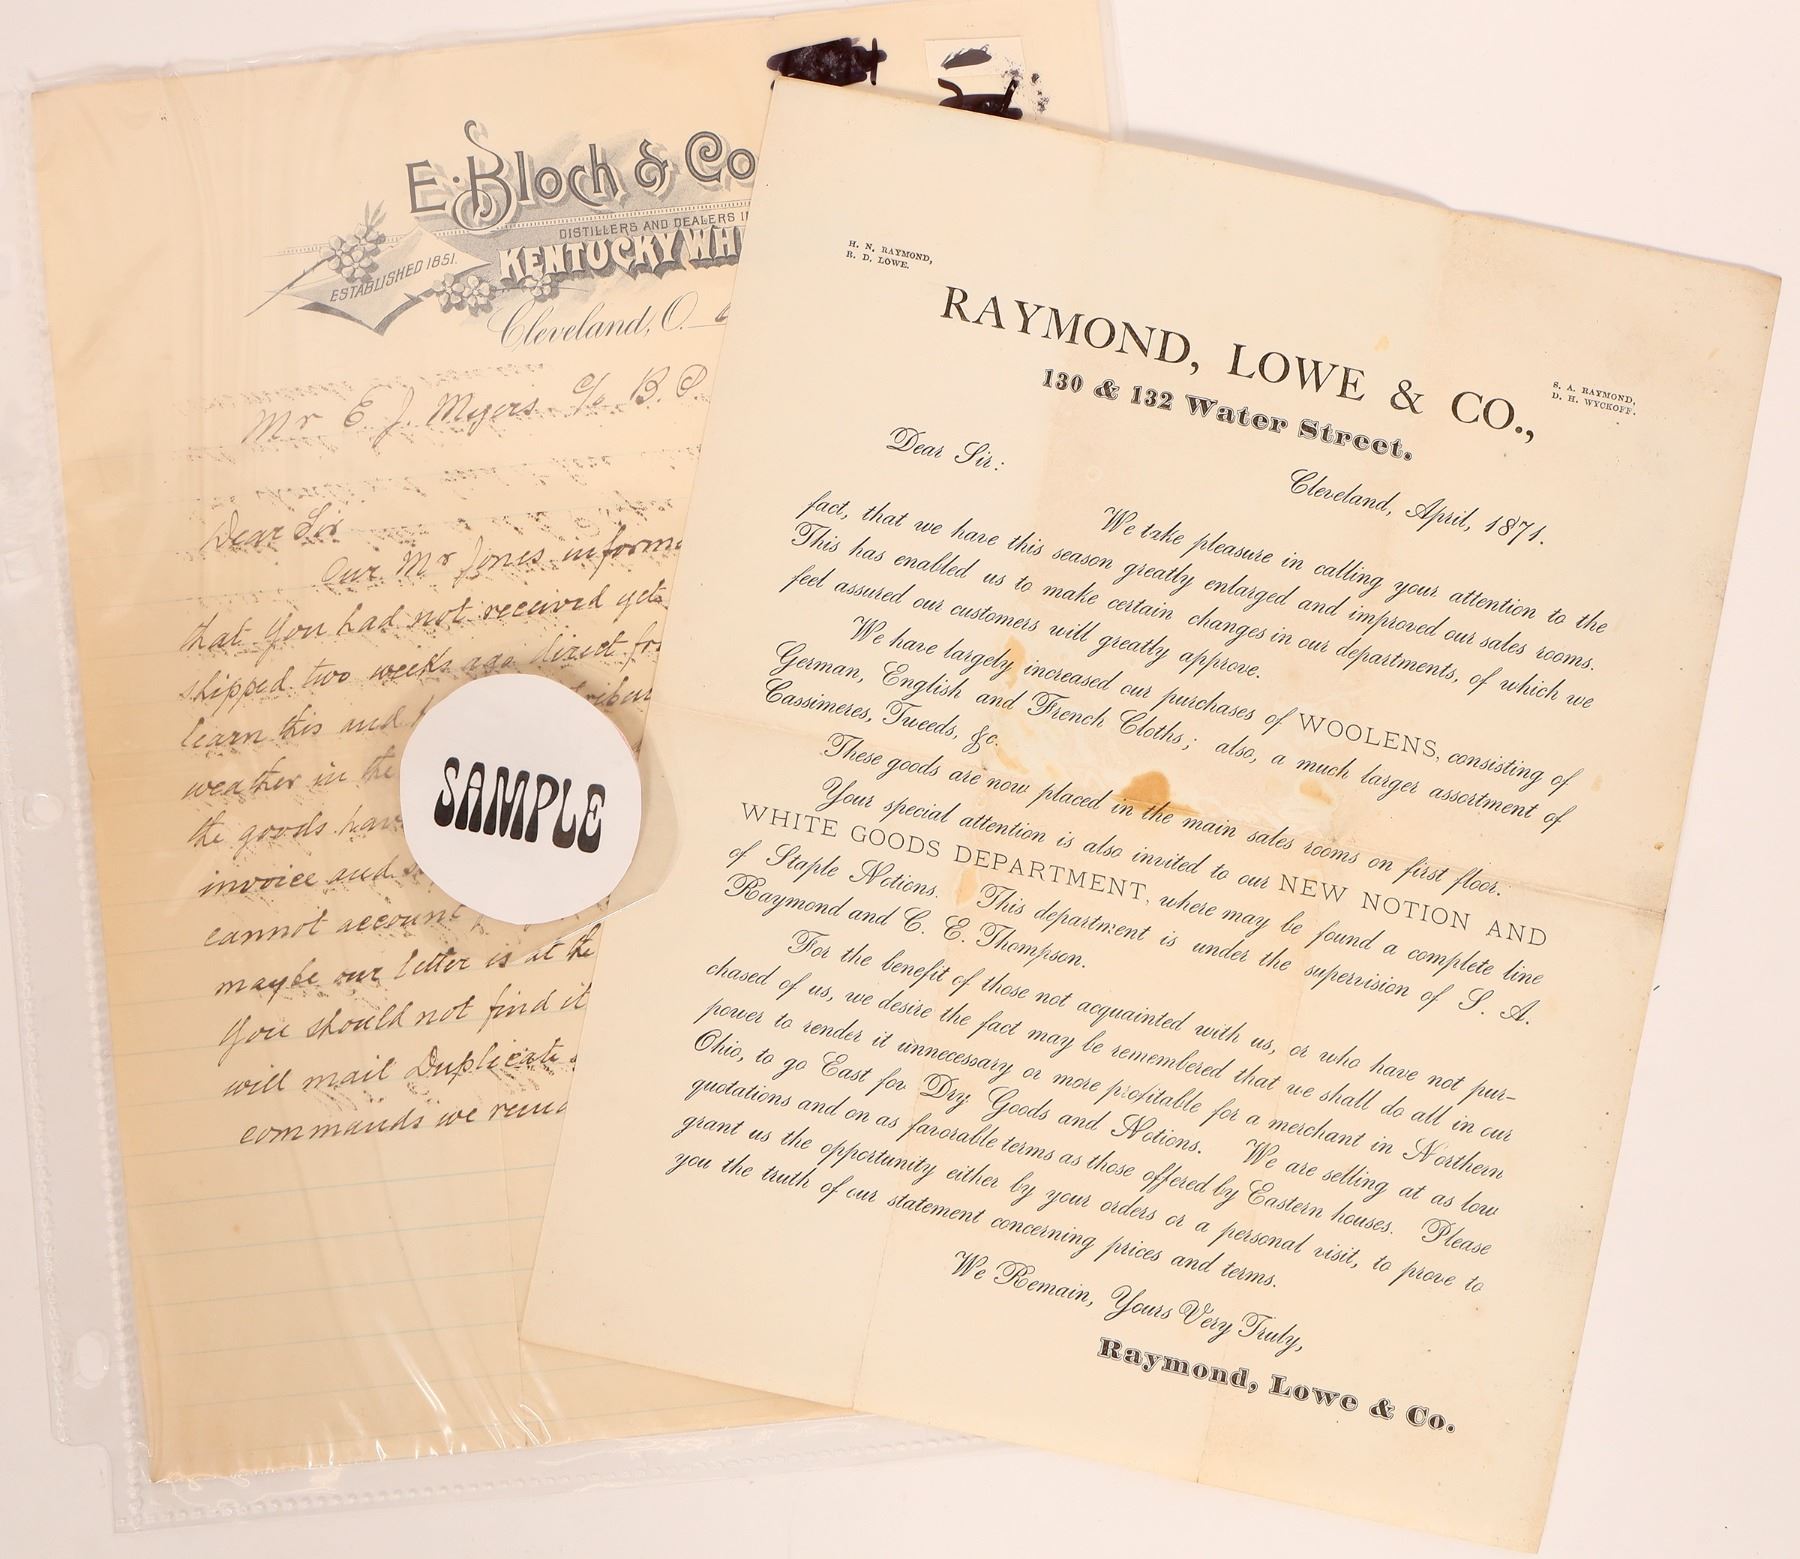 E. Bloch & Co
DISTILLERS AND DEALERS IN
KENTUCKY WHI
ESTABLISHED 1851.
Cleveland, O.
Mr E. J. Meyers c/o B. P.
Dear Sir
Our Mr Jones informe
that you had not received yet
shipped two weeks ago direct fr
learn this and
weather in the
the goods hav
invoice and
cannot account
maybe our letter is at the
You should not find it
will mail Duplicate
commands we rema
SAMPLE
H. N. RAYMOND,
R. D. LOWE.
RAYMOND, LOWE & CO.,
S. A. RAYMOND,
D. H. WYCKOFF.
130 & 132 Water Street.
Cleveland, April, 1871.
Dear Sir:
We take pleasure in calling your attention to the
fact, that we have this season greatly enlarged and improved our sales rooms.
This has enabled us to make certain changes in our departments, of which we
feel assured our customers will greatly approve.
We have largely increased our purchases of WOOLENS, consisting of
German, English and French Cloths; also, a much larger assortment of
Cassimeres, Tweeds, &c.
These goods are now placed in the main sales rooms on first floor.
Your special attention is also invited to our NEW NOTION AND
WHITE GOODS DEPARTMENT, where may be found a complete line
of Staple Notions. This department is under the supervision of S. A.
Raymond and C. E. Thompson.
For the benefit of those not acquainted with us, or who have not pur-
chased of us, we desire the fact may be remembered that we shall do all in our
power to render it unnecessary or more profitable for a merchant in Northern
Ohio, to go East for Dry Goods and Notions. We are selling at as low
quotations and on as favorable terms as those offered by Eastern houses. Please
grant us the opportunity either by your orders or a personal visit, to prove to
you the truth of our statement concerning prices and terms.
We Remain, Yours Very Truly,
Raymond, Lowe & Co.